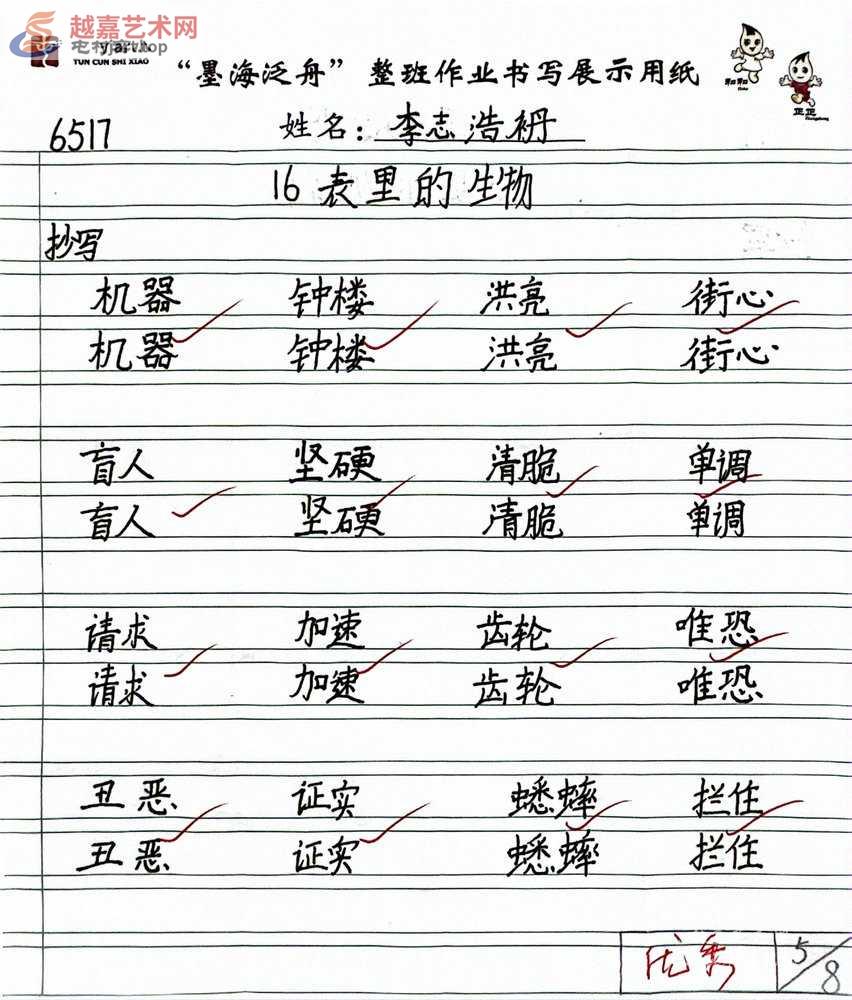 越嘉艺术网
yjart.top
TUN CUN SHI XIAO
“墨海泛舟”整班作业书写展示用纸
和和
正正
6517 姓名：李志浩
16 表里的生物
抄写
机器 钟楼 洪亮 街心
机器 钟楼 洪亮 街心
盲人 坚硬 清脆 单调
盲人 坚硬 清脆 单调
请求 加速 齿轮 唯恐
请求 加速 齿轮 唯恐
丑恶 证实 蟋蟀 拦住
丑恶 证实 蟋蟀 拦住
优秀 5/8